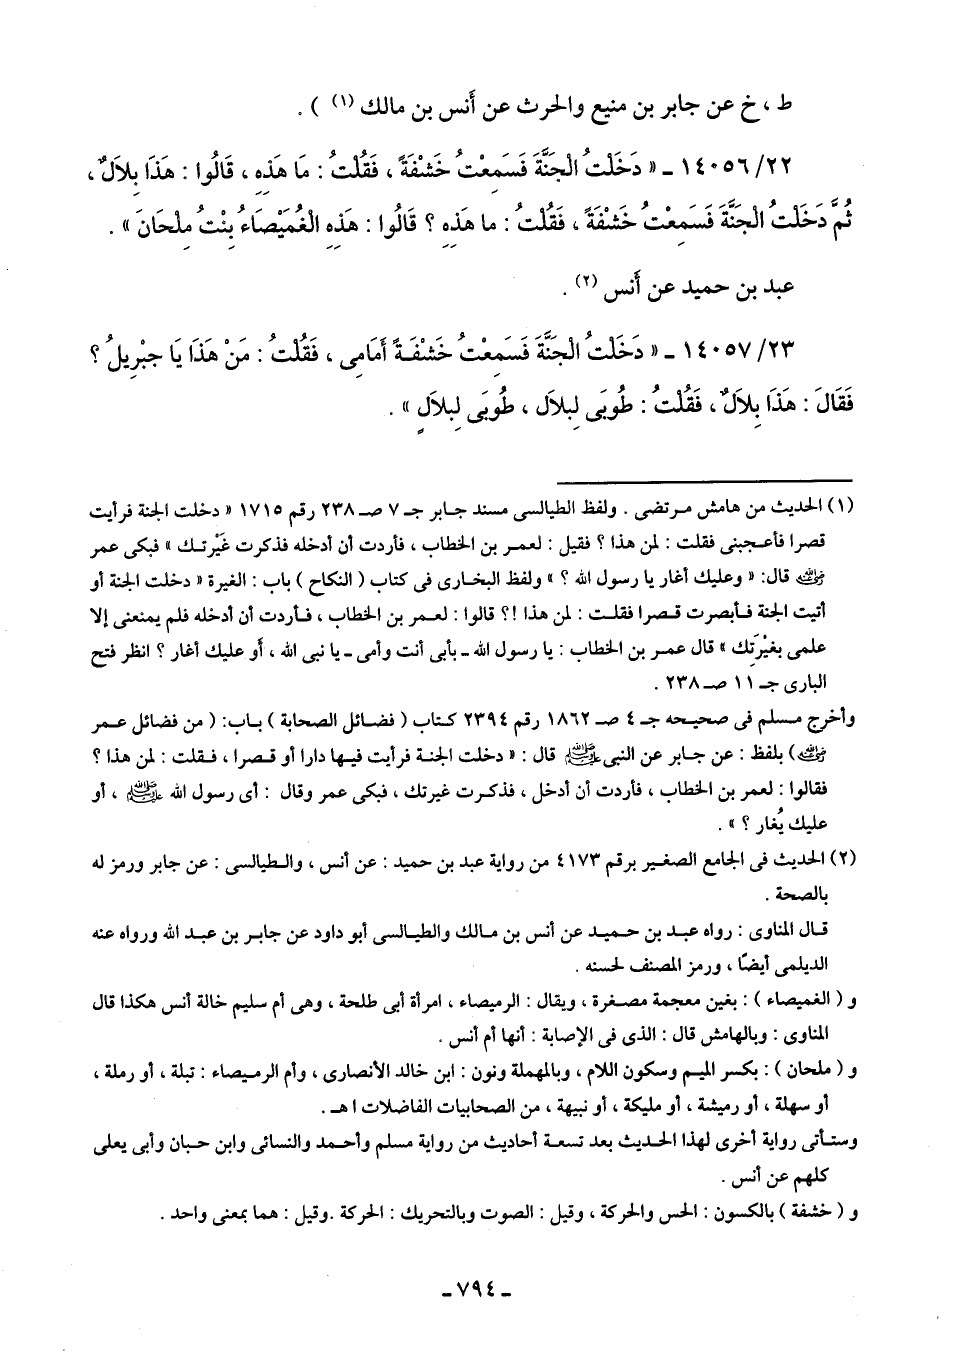 ط ، خ عن جابر بن منيع والحرث عن أَنس بن مالك (١) ) .
٢٢/ ١٤٠٥٦ ـ « دَخَلْتُ الْجَنَّةَ فَسَمِعْتُ خَشْفَةً ، فَقُلْتُ : مَا هَذِهِ ، قَالُوا : هَذَا بِلاَلٌ ،
ثُمَّ دَخَلْتُ الْجَنَّةَ فَسَمِعْتُ خَشْفَةً ، فَقُلْتُ : ما هَذِهِ ؟ قَالُوا : هَذِهِ الْغُمَيْصَاءُ بِنْتُ مِلْحَانَ » .
عبد بن حميد عن أَنس (٢) .
٢٣/ ١٤٠٥٧ ـ « دَخَلْتُ الْجَنَّةَ فَسَمِعْتُ خَشْفَةً أَمَامِى ، فَقُلْتُ : مَنْ هَذَا يَا جِبْرِيلُ ؟
فَقَالَ : هَذَا بِلاَلٌ ، فَقُلْتُ : طُوبَى لِبلاَل ، طُوبَى لِبلاَلٍ » .
(١) الحديث من هامش مرتضى . ولفظ الطيالسى مسند جابر جـ ٧ صـ ٢٣٨ رقم ١٧١٥ « دخلت الجنة فرأيت
قصرا فأعجبنى فقلت : لمن هذا ؟ فقيل : لعمر بن الخطاب ، فأردت أن أدخله فذكرت غَيْرتك » فبكى عمر
رضي الله عنه قال: « وعليك أغار يا رسول الله ؟ » ولفظ البخارى فى كتاب ( النكاح ) باب : الغيرة « دخلت الجنة أو
أتيت الجنة فأبصرت قصرا فقلت : لمن هذا !؟ قالوا : لعمر بن الخطاب ، فأردت أن أدخله فلم يمنعنى إلا
علمى بغيْرَتِك » قال عمر بن الخطاب : يا رسول الله ـ بأبى أنت وأمى ـ يا نبى الله ، أو عليك أغار ؟ انظر فتح
البارى جـ ١١ صـ ٢٣٨ .
وأخرج مسلم فى صحيحه جـ ٤ صـ ١٨٦٢ رقم ٢٣٩٤ كتاب ( فضائل الصحابة ) باب: ( من فضائل عمر
رضي الله عنه ) بلفظ : عن جابر عن النبى ﷺ قال : « دخلت الجنة فرأيت فيها دارا أو قصرا ، فقلت : لمن هذا ؟
فقالوا : لعمر بن الخطاب ، فأردت أن أدخل ، فذكرت غيرتك ، فبكى عمر وقال : أى رسول الله ﷺ ، أو
عليك يُغار ؟ » .
(٢) الحديث فى الجامع الصغير برقم ٤١٧٣ من رواية عبد بن حميد : عن أنس ، والطيالسى : عن جابر ورمز له
بالصحة .
قال المناوى : رواه عبد بن حميد عن أنس بن مالك والطيالسى أبو داود عن جابر بن عبد الله ورواه عنه
الديلمى أيضًا ، ورمز المصنف لحسنه .
و ( الغميصاء ) : بغين معجمة مصغرة ، ويقال : الرميصاء ، امرأة أبى طلحة ، وهى أم سليم خالة أنس هكذا قال
المناوى : وبالهامش قال : الذى فى الإصابة : أنها أم أنس .
و ( ملحان ) : بكسر الميم وسكون اللام ، وبالمهملة ونون : ابن خالد الأنصارى ، وأم الرميصاء : تبلة ، أو رملة ،
أو سهلة ، أو رميشة ، أو مليكة ، أو نبيهة ، من الصحابيات الفاضلات اهـ .
وستأتى رواية أخرى لهذا الحديث بعد تسعة أحاديث من رواية مسلم وأحمد والنسائى وابن حبان وأبى يعلى
كلهم عن أنس .
و ( خشفة ) بالكسون : الحس والحركة ، وقيل : الصوت وبالتحريك : الحركة .وقيل : هما بمعنى واحد .
ـ ٧٩٤ ـ